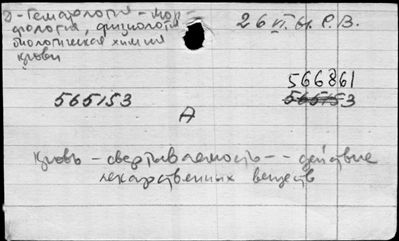 Д-Гематология - мор-
фология, физиология
биологическая химия
крови
26 VI 61. Р.В.
566861
565153
565153
А
Кровь - свертываемость - - действие
лекарственных веществ